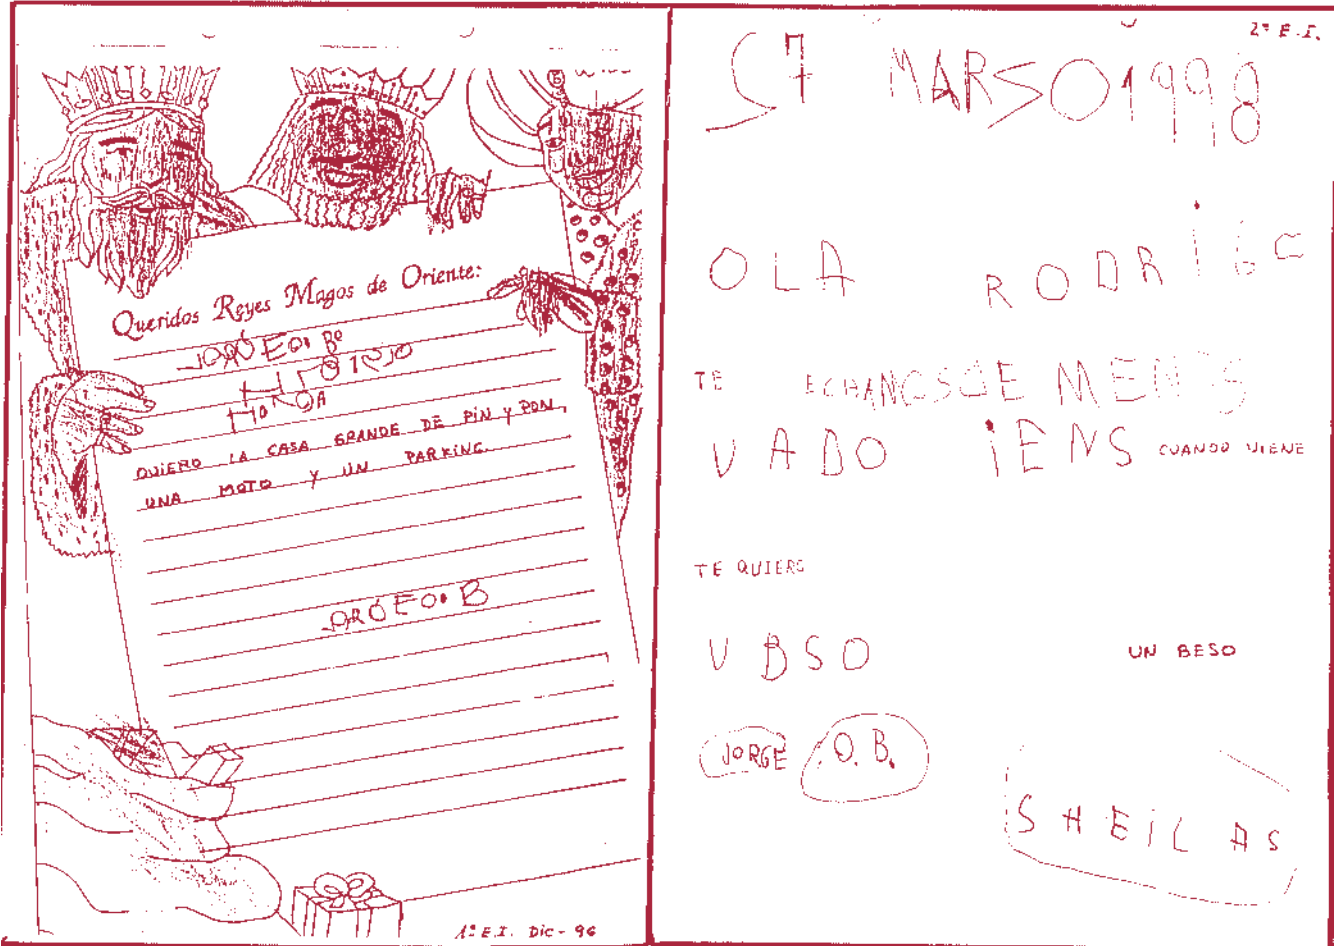 Queridos Reyes Magos de Oriente:
QUIERO LA CASA GRANDE DE PIN Y PON,
UNA MOTO Y UN PARKING.
1º E.I. DIC - 96
2º E.I.
57 MARSO 1998
OLA RODRIGC
TE ECHANGSDE MENOS
VADO IENS CUANDO VIENE
TE QUIERO
VBSO UN BESO
JORGE O.B.
SHEILA S